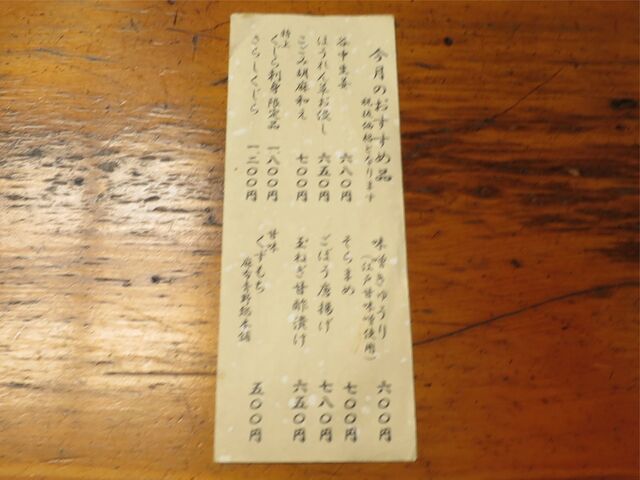 今月のおすすめ品
税抜価格となります
谷中生姜 六八〇円
ほうれん草お浸し 六五〇円
こごみ胡麻和え 七〇〇円
特上
くじら刺身限定品 一、八〇〇円
さらしくじら 一、二〇〇円
味噌きゅうり 六〇〇円
(江戸甘味噌使用)
そらまめ 七〇〇円
ごぼう唐揚げ 七八〇円
玉ねぎ甘酢漬け 六五〇円
甘味
くずもち 五〇〇円
麻布青野総本舗